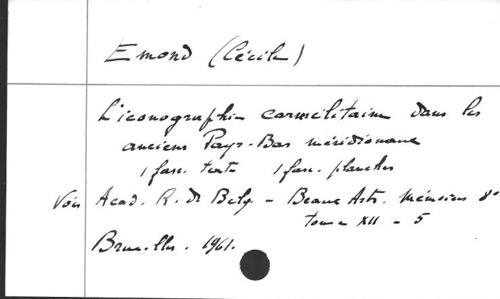 Emond (Cécile)
L'iconographie carmélitaine dans les
anciens Pays-Bas méridionaux
1 fasc. texte 1 fasc. planches
Voir Acad. R. de Belg. - Beaux Arts. Mémoires 8°
tome XII - 5
Bruxelles. 1961.